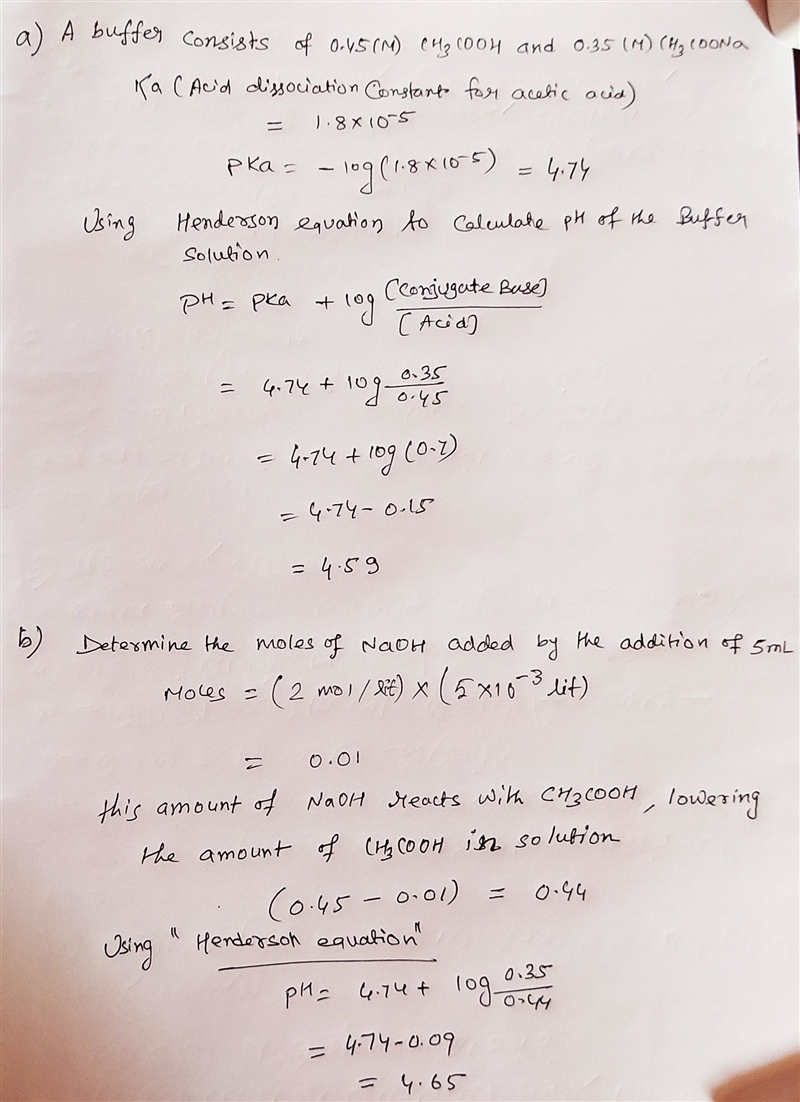 a) A buffer consists of 0.45(M) CH3COOH and 0.35 (M) CH3COONa
Ka (Acid dissociation Constant for acetic acid)
= 1.8×10-5
PKa = -log(1.8×10-5) = 4.74
Using Henderson equation to Calculate pH of the Buffer
Solution.
PH = PKa + log [Conjugate Base]/[Acid]
= 4.74 + log 0.35/0.45
= 4.74 + log (0.7)
= 4.74 - 0.15
= 4.59
b) Determine the moles of NaOH added by the addition of 5mL
Moles = (2 mol/lit) × (5×10-3 lit)
= 0.01
this amount of NaOH reacts with CH3COOH, lowering
the amount of CH3COOH in solution
(0.45 - 0.01) = 0.44
Using "Henderson equation"
pH = 4.74 + log 0.35/0.44
= 4.74-0.09
= 4.65